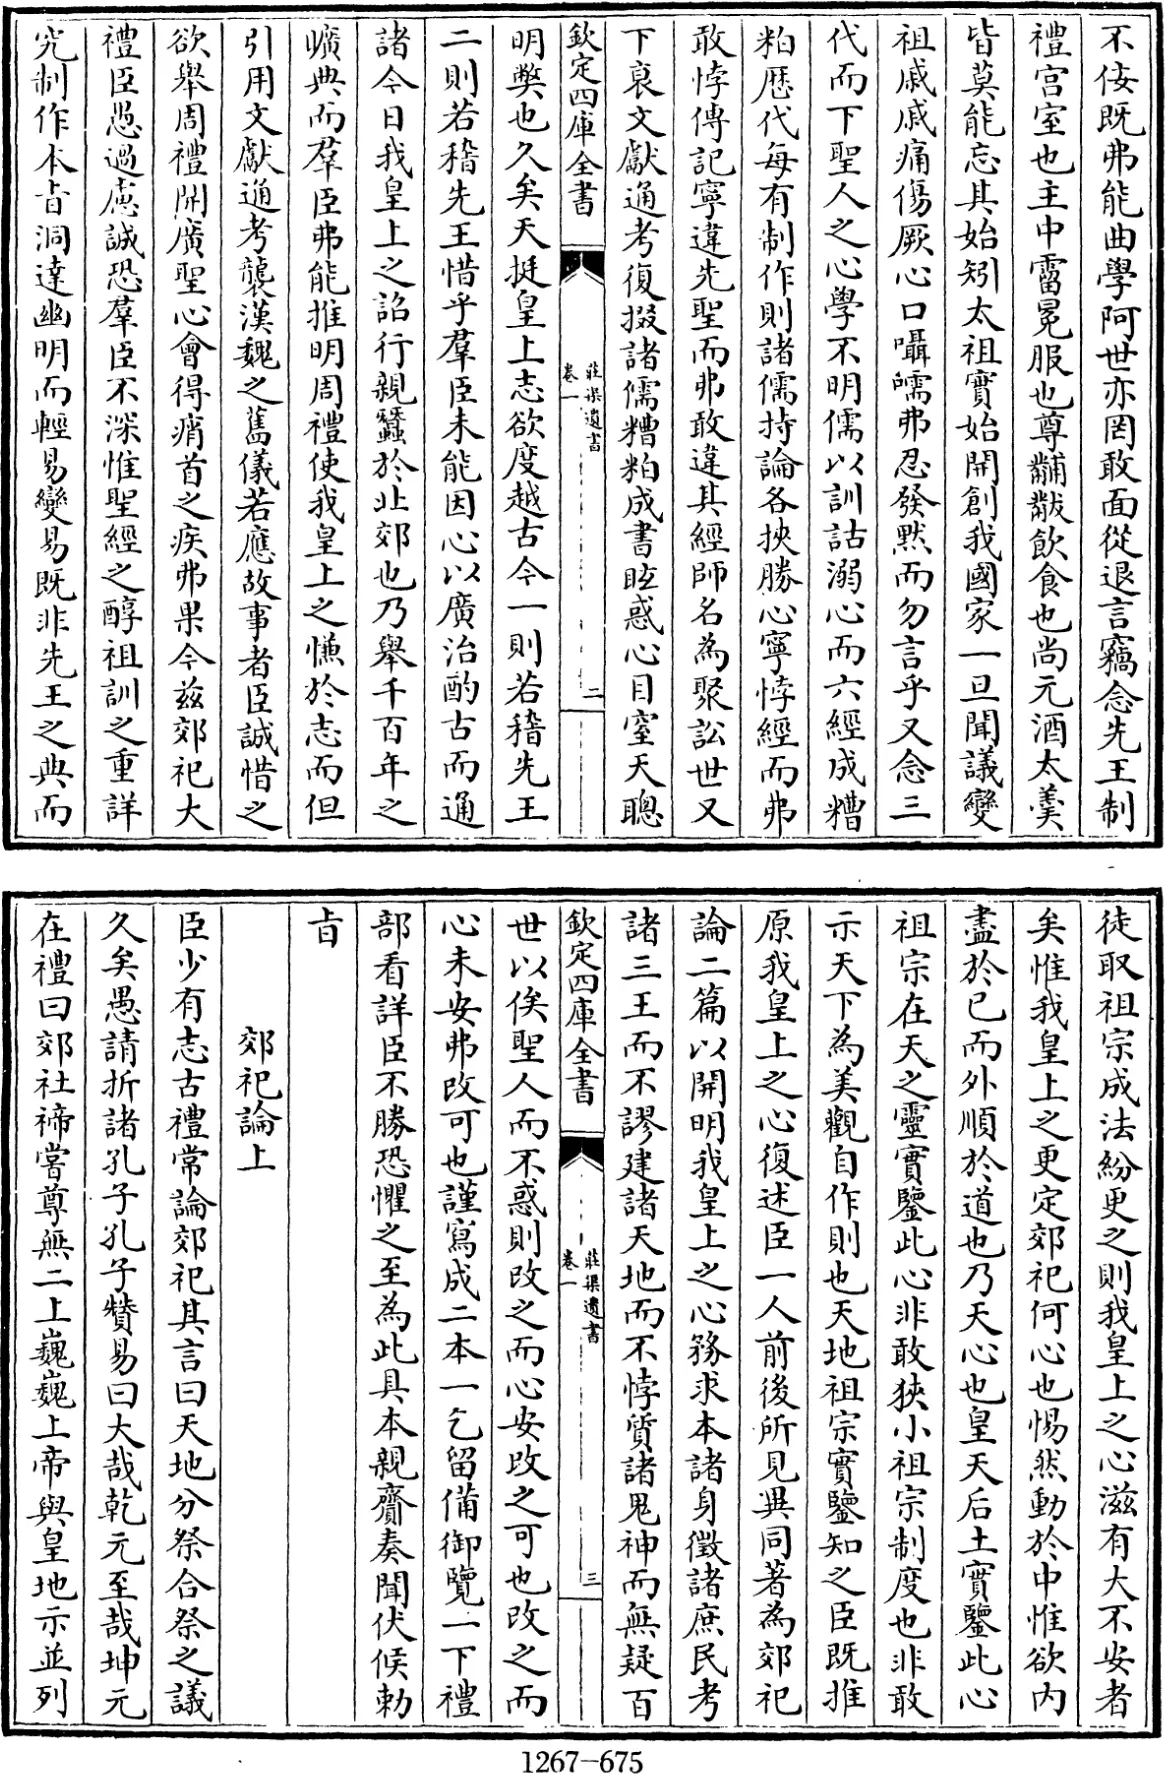 不佞既弗能曲學阿世亦罔敢面從退言竊念先王制
禮宫室也主中霤冕服也尊黼黻飲食也尚元酒太羮
皆莫能忘其始矧太祖實始開創我國家一旦聞議變
祖戚戚痛傷厥心口囁嚅弗忍發黙而勿言乎又念三
代而下聖人之心學不明儒以訓詁溺心而六經成糟
粕歴代每有制作則諸儒持論各挾勝心寧悖經而弗
敢悖傳記寧違先聖而弗敢違其經師名為聚訟世又
下裒文獻通考復掇諸儒糟粕成書眩惑心目窒天聰
欽定四庫全書
莊渠遺書
卷一
二
明獘也久矣天挺皇上志欲度越古今一則若稽先王
二則若稽先王惜乎羣臣未能因心以廣治酌古而通
諸今日我皇上之詔行親蠶於北郊也乃舉千百年之
曠典而羣臣弗能推明周禮使我皇上之慊於志而但
引用文獻通考襲漢魏之舊儀若應故事者臣誠惜之
欲舉周禮開廣聖心會得痟首之疾弗果今兹郊祀大
禮臣愚過慮誠恐羣臣不深惟聖經之醇祖訓之重詳
究制作本旨洞達幽明而輕易變易既非先王之典而
徒取祖宗成法紛更之則我皇上之心滋有大不安者
矣惟我皇上之更定郊祀何心也惕然動於中惟欲内
盡於已而外順於道也乃天心也皇天后土實鑒此心
祖宗在天之靈實鑒此心非敢狹小祖宗制度也非敢
示天下為美觀自作則也天地祖宗實鑒知之臣既推
原我皇上之心復述臣一人前後所見異同著為郊祀
論二篇以開明我皇上之心務求本諸身徵諸庶民考
諸三王而不謬建諸天地而不悖質諸鬼神而無疑百
欽定四庫全書
莊渠遺書
卷一
三
世以俟聖人而不惑則改之而心安改之可也改之而
心未安弗改可也謹寫成二本一乞留備御覽一下禮
部看詳臣不勝恐懼之至為此具本親齎奏聞伏候勅
旨
郊祀論上
臣少有志古禮常論郊祀其言曰天地分祭合祭之議
久矣愚請折諸孔子孔子贊易曰大哉乾元至哉坤元
在禮曰郊社禘嘗尊無二上巍巍上帝與皇地示並列
1267-675